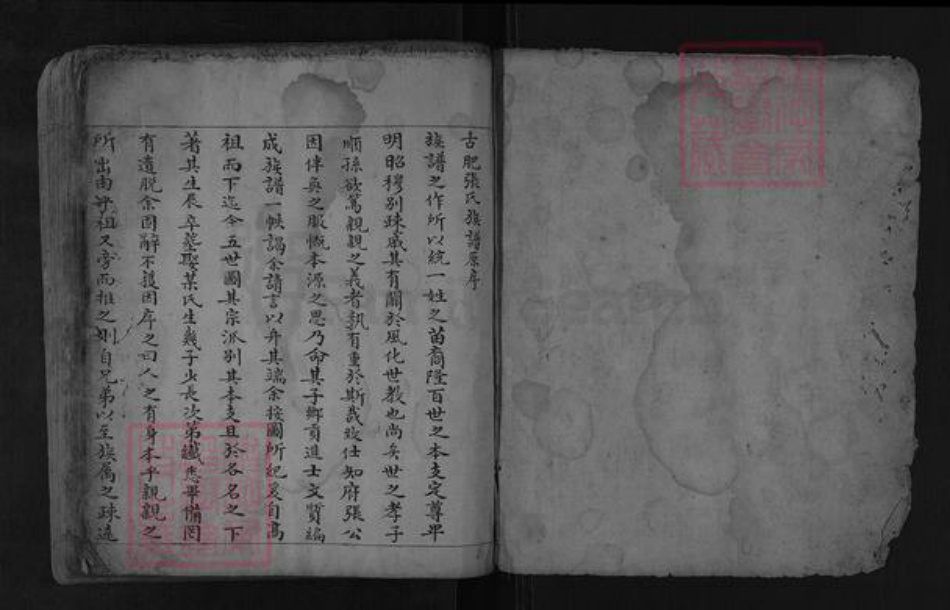 古肥張氏族譜原序
族譜之作所以統一姓之苗裔隆百世之本支定尊卑
明昭穆別疎戚其有關於風化世教也尚矣世之孝子
順孫欲篤親親之義者孰有重於斯哉致仕知府張公
因伴奐之暇慨本源之思乃命其子鄉貢進士文質編
成族譜一帙謁余請言以弁其端余按圖所紀爰自高
祖而下迄今五世圖其宗派別其本支且於各名之下
著其生辰卒塟娶某氏生幾子少長次第纖悉畢備罔
有遺脫余固辭不獲因序之曰人之有身本乎親親之
所出由乎祖又旁而推之則自兄弟以至族属之疎遠